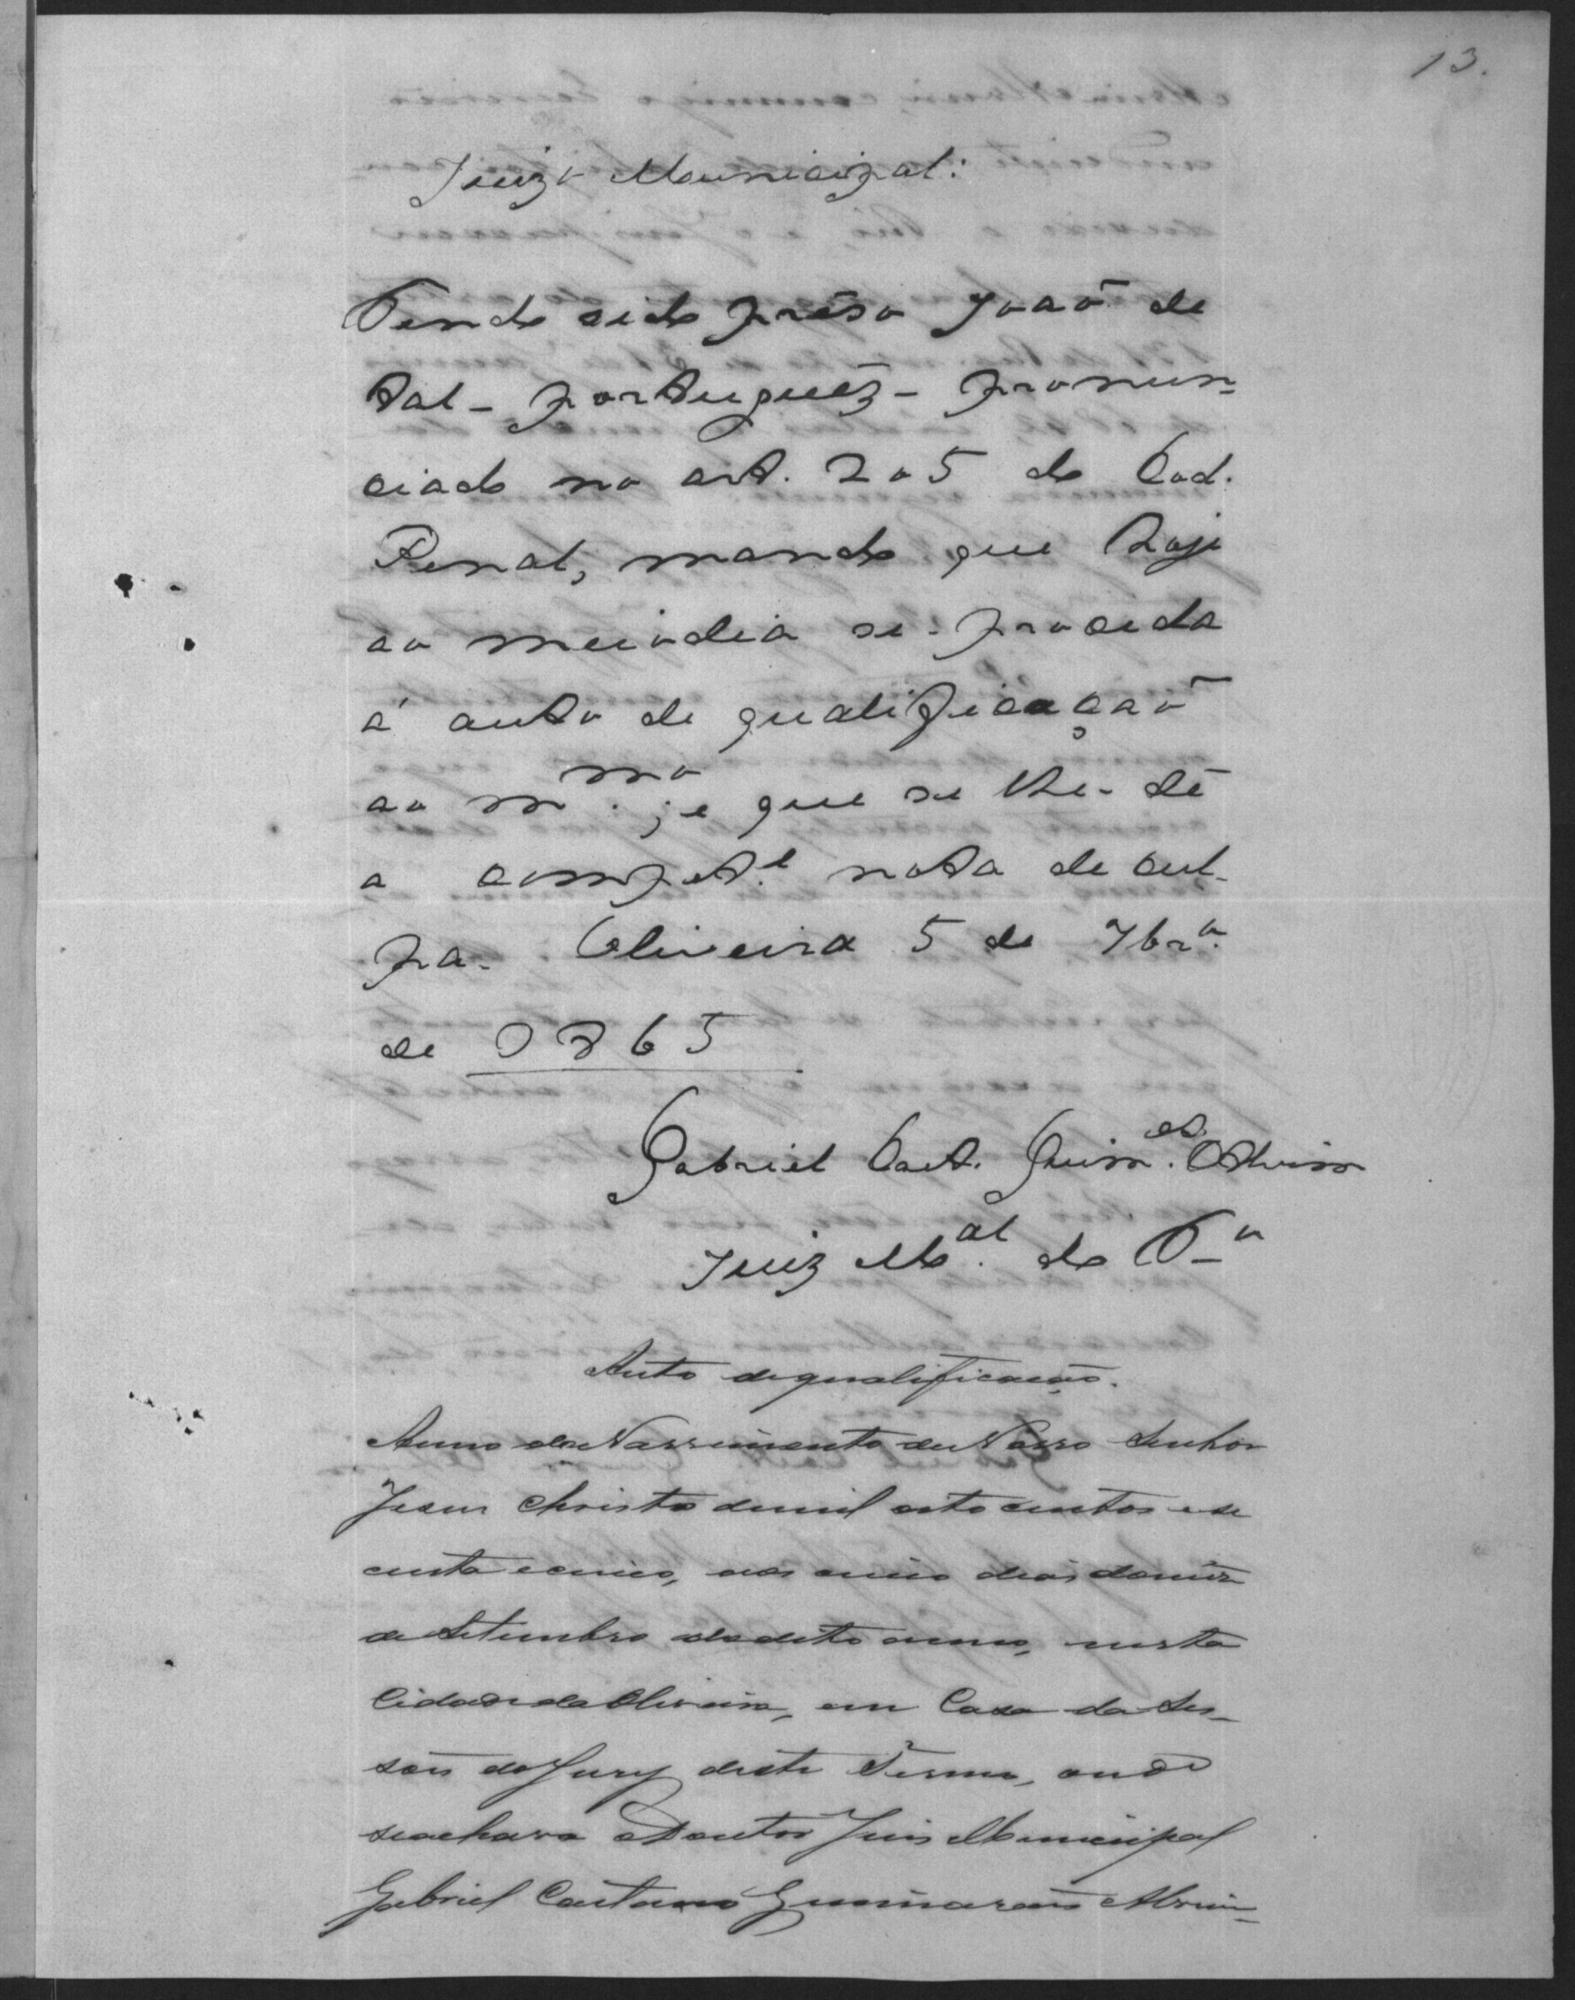 13.
Juizo Municipal:
Tendo sido prêso João de
tal - portuguêz - pronun-
ciado no art. 205 do Cod.
Penal, mando que hoje
ao meiodia se-proceda
á auto de qualificação
ao m.mo; e que se lhe-dê
a compet.e nota de cul-
pa. Oliveira 5 de 7br.o
de 1865
Gabriel Caet. Guim.es
Juiz M.al do T.o
Auto de qualificação.
Anno do Nascimento de Nosso Senhor
Jesus Christo de mil oito centos e se
centa e cinco, aos cinco dias do mêz
de Setembro do dito anno, nesta
Cidade da Oliveira, em Casa da Ses-
são do Jury deste Termo, onde
se achava o Doutor Juis Municipal
Gabriel Caetano Guimarães